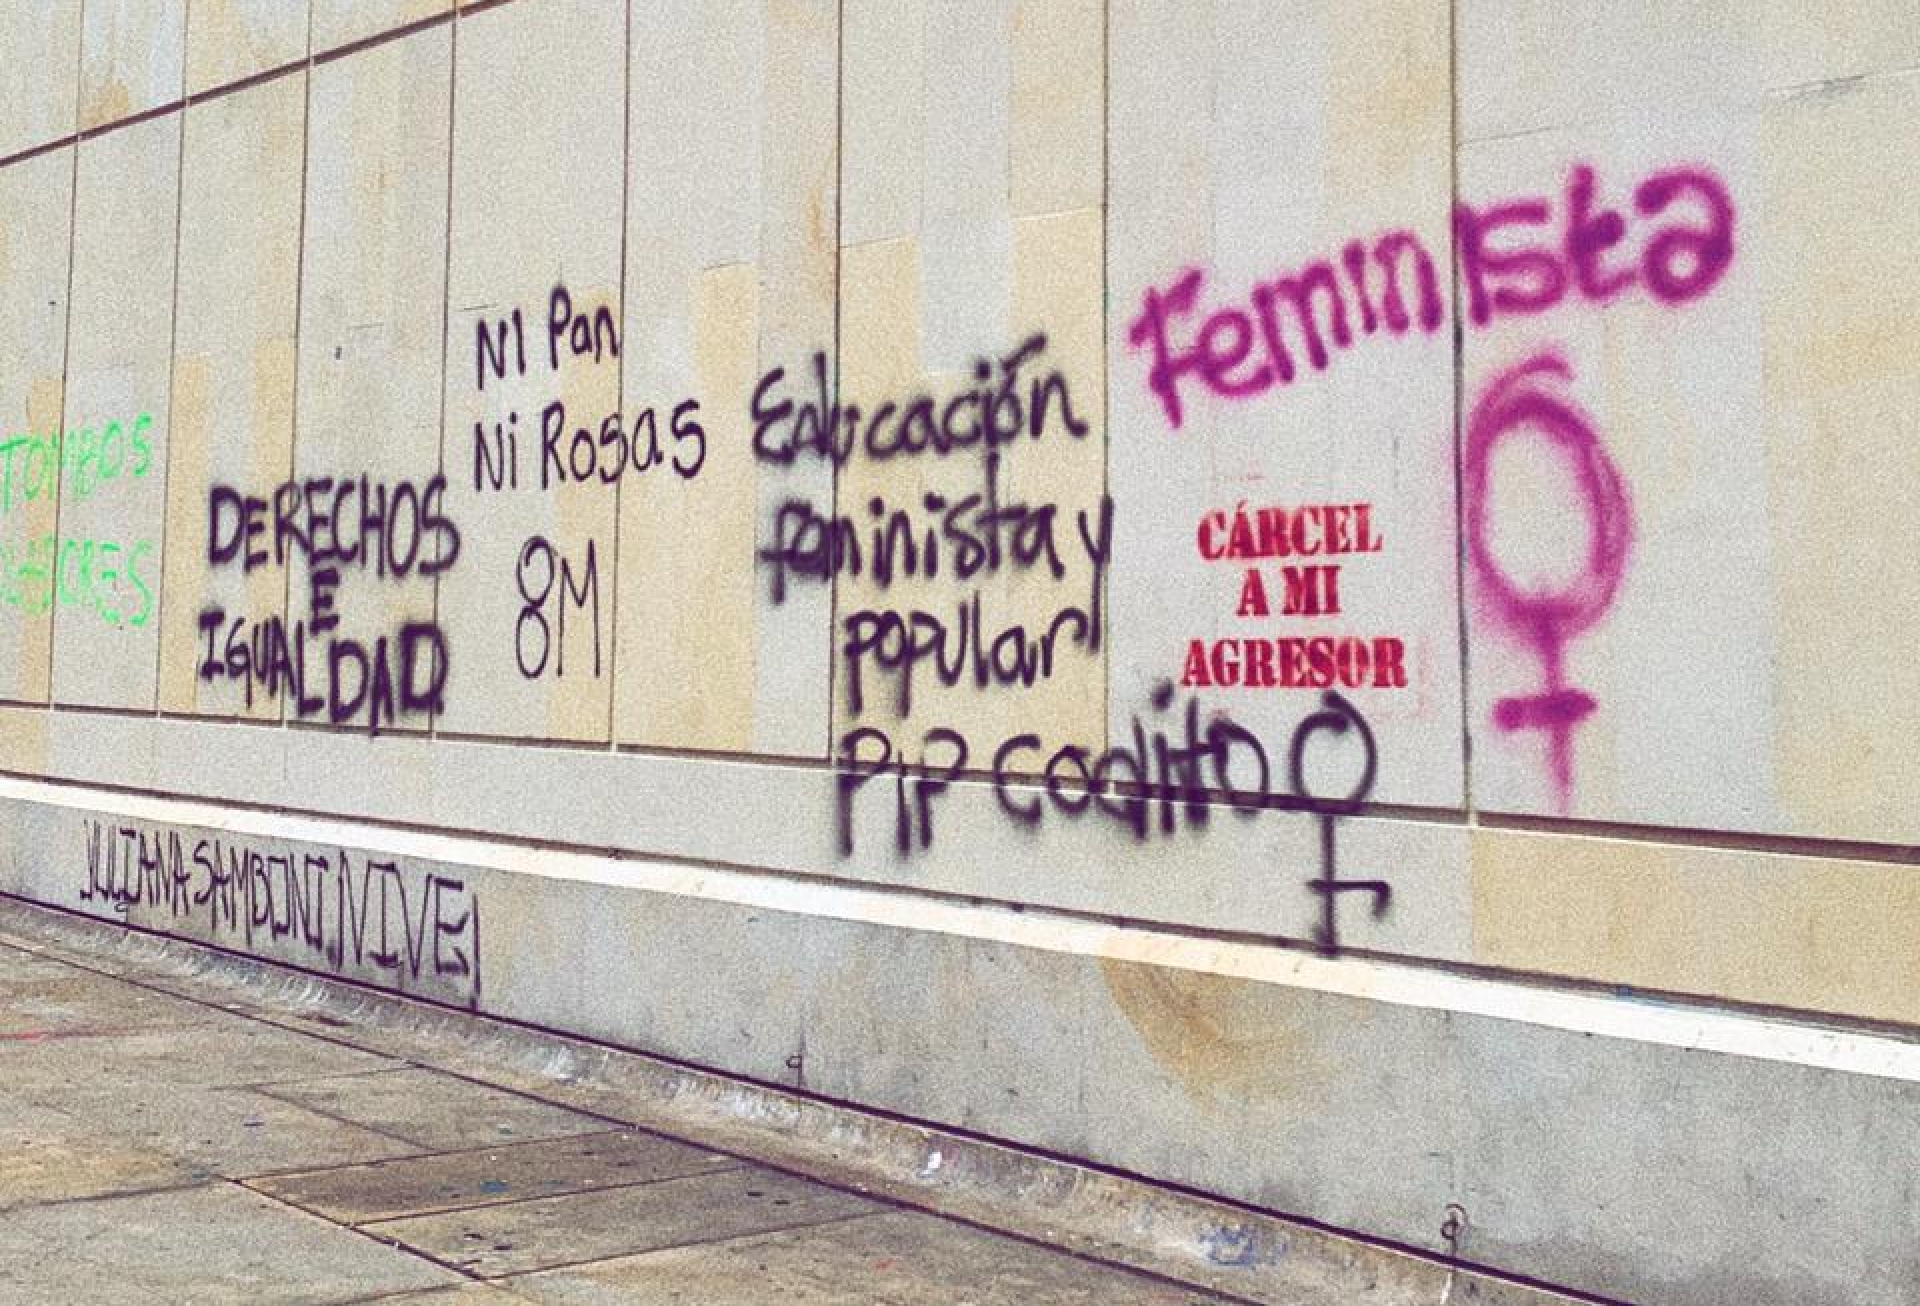 TOMBOS
DERECHOS
E
IGUALDAD
Ni Pan
Ni Rosas
8M
Educación
feminista y
popular
PIP Codito
Feminista
CÁRCEL
A MI
AGRESOR
YULIANA SAMBONI VIVE!